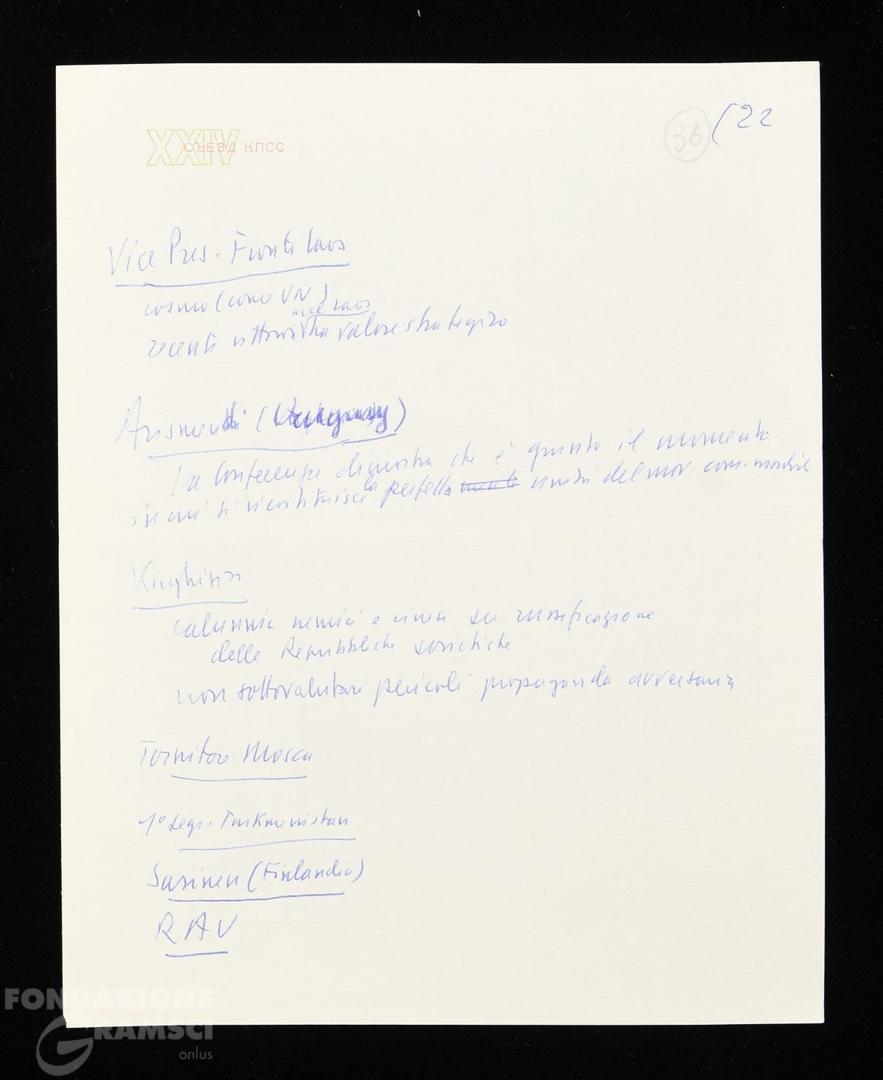 XXIV
СЪЕЗД КПСС
36 (22
Vice Pres. Fronte Laos
cosmo (como VN)
nel Laos
recenti vittoria ha valore strategico
Arismendi (Uruguay)
La Conferenza dimostra che è giunto il momento
in cui si ricostituisce la perfetta unità del mov. com. mondiale
Kirghisia
calunnie nemici e cinesi su russificazione
delle Repubbliche sovietiche
non sottovalutare pericoli propaganda avversaria
Tornitore Mosca
1° segr. Turkmenistan
Sarinen (Finlandia)
RAU
FONDAZIONE
GRAMSCI
onlus